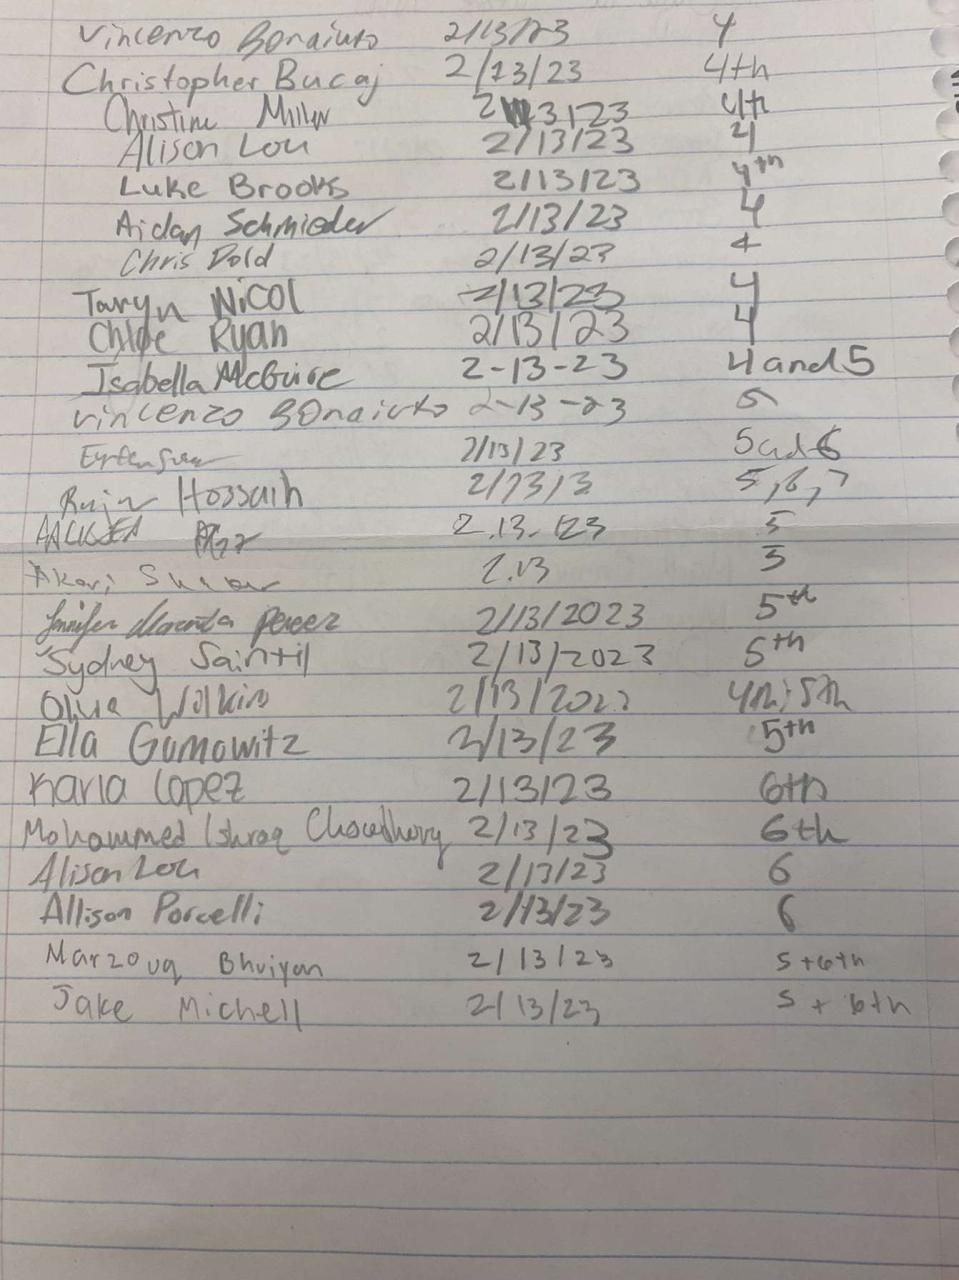 Vincenzo Bonaiuto 2/13/23 4
Christopher Bucaj 2/13/23 4th
Christine Miller 2/13/23 4th
Alison Lou 2/13/23 4
Luke Brooks 2/13/23 4th
Aidan Schmieder 2/13/23 4
Chris Dold 2/13/23 4
Taryn Nicol 2/13/23 4
Chloe Ryan 2/13/23 4
Isabella McGuire 2-13-23 4 and 5
Vincenzo Bonaiuto 2-13-23 5
2/13/23 5 and 6
Hossain 2/13/23 5,6,7
2.13.23 5
Akari 2.13 5
Jennifer Perez 2/13/2023 5th
Sydney Saintil 2/13/2023 5th
Olivia Wilkins 2/13/2023 4th; 5th
Ella Gomowitz 2/13/23 5th
Karla Lopez 2/13/23 6th
Mohammed Ishraq Chowdhury 2/13/23 6th
Alison Lou 2/13/23 6
Allison Porcelli 2/13/23 6
Marzouq Bhuiyan 2/13/23 5+6th
Jake Michell 2/13/23 5 + 6th